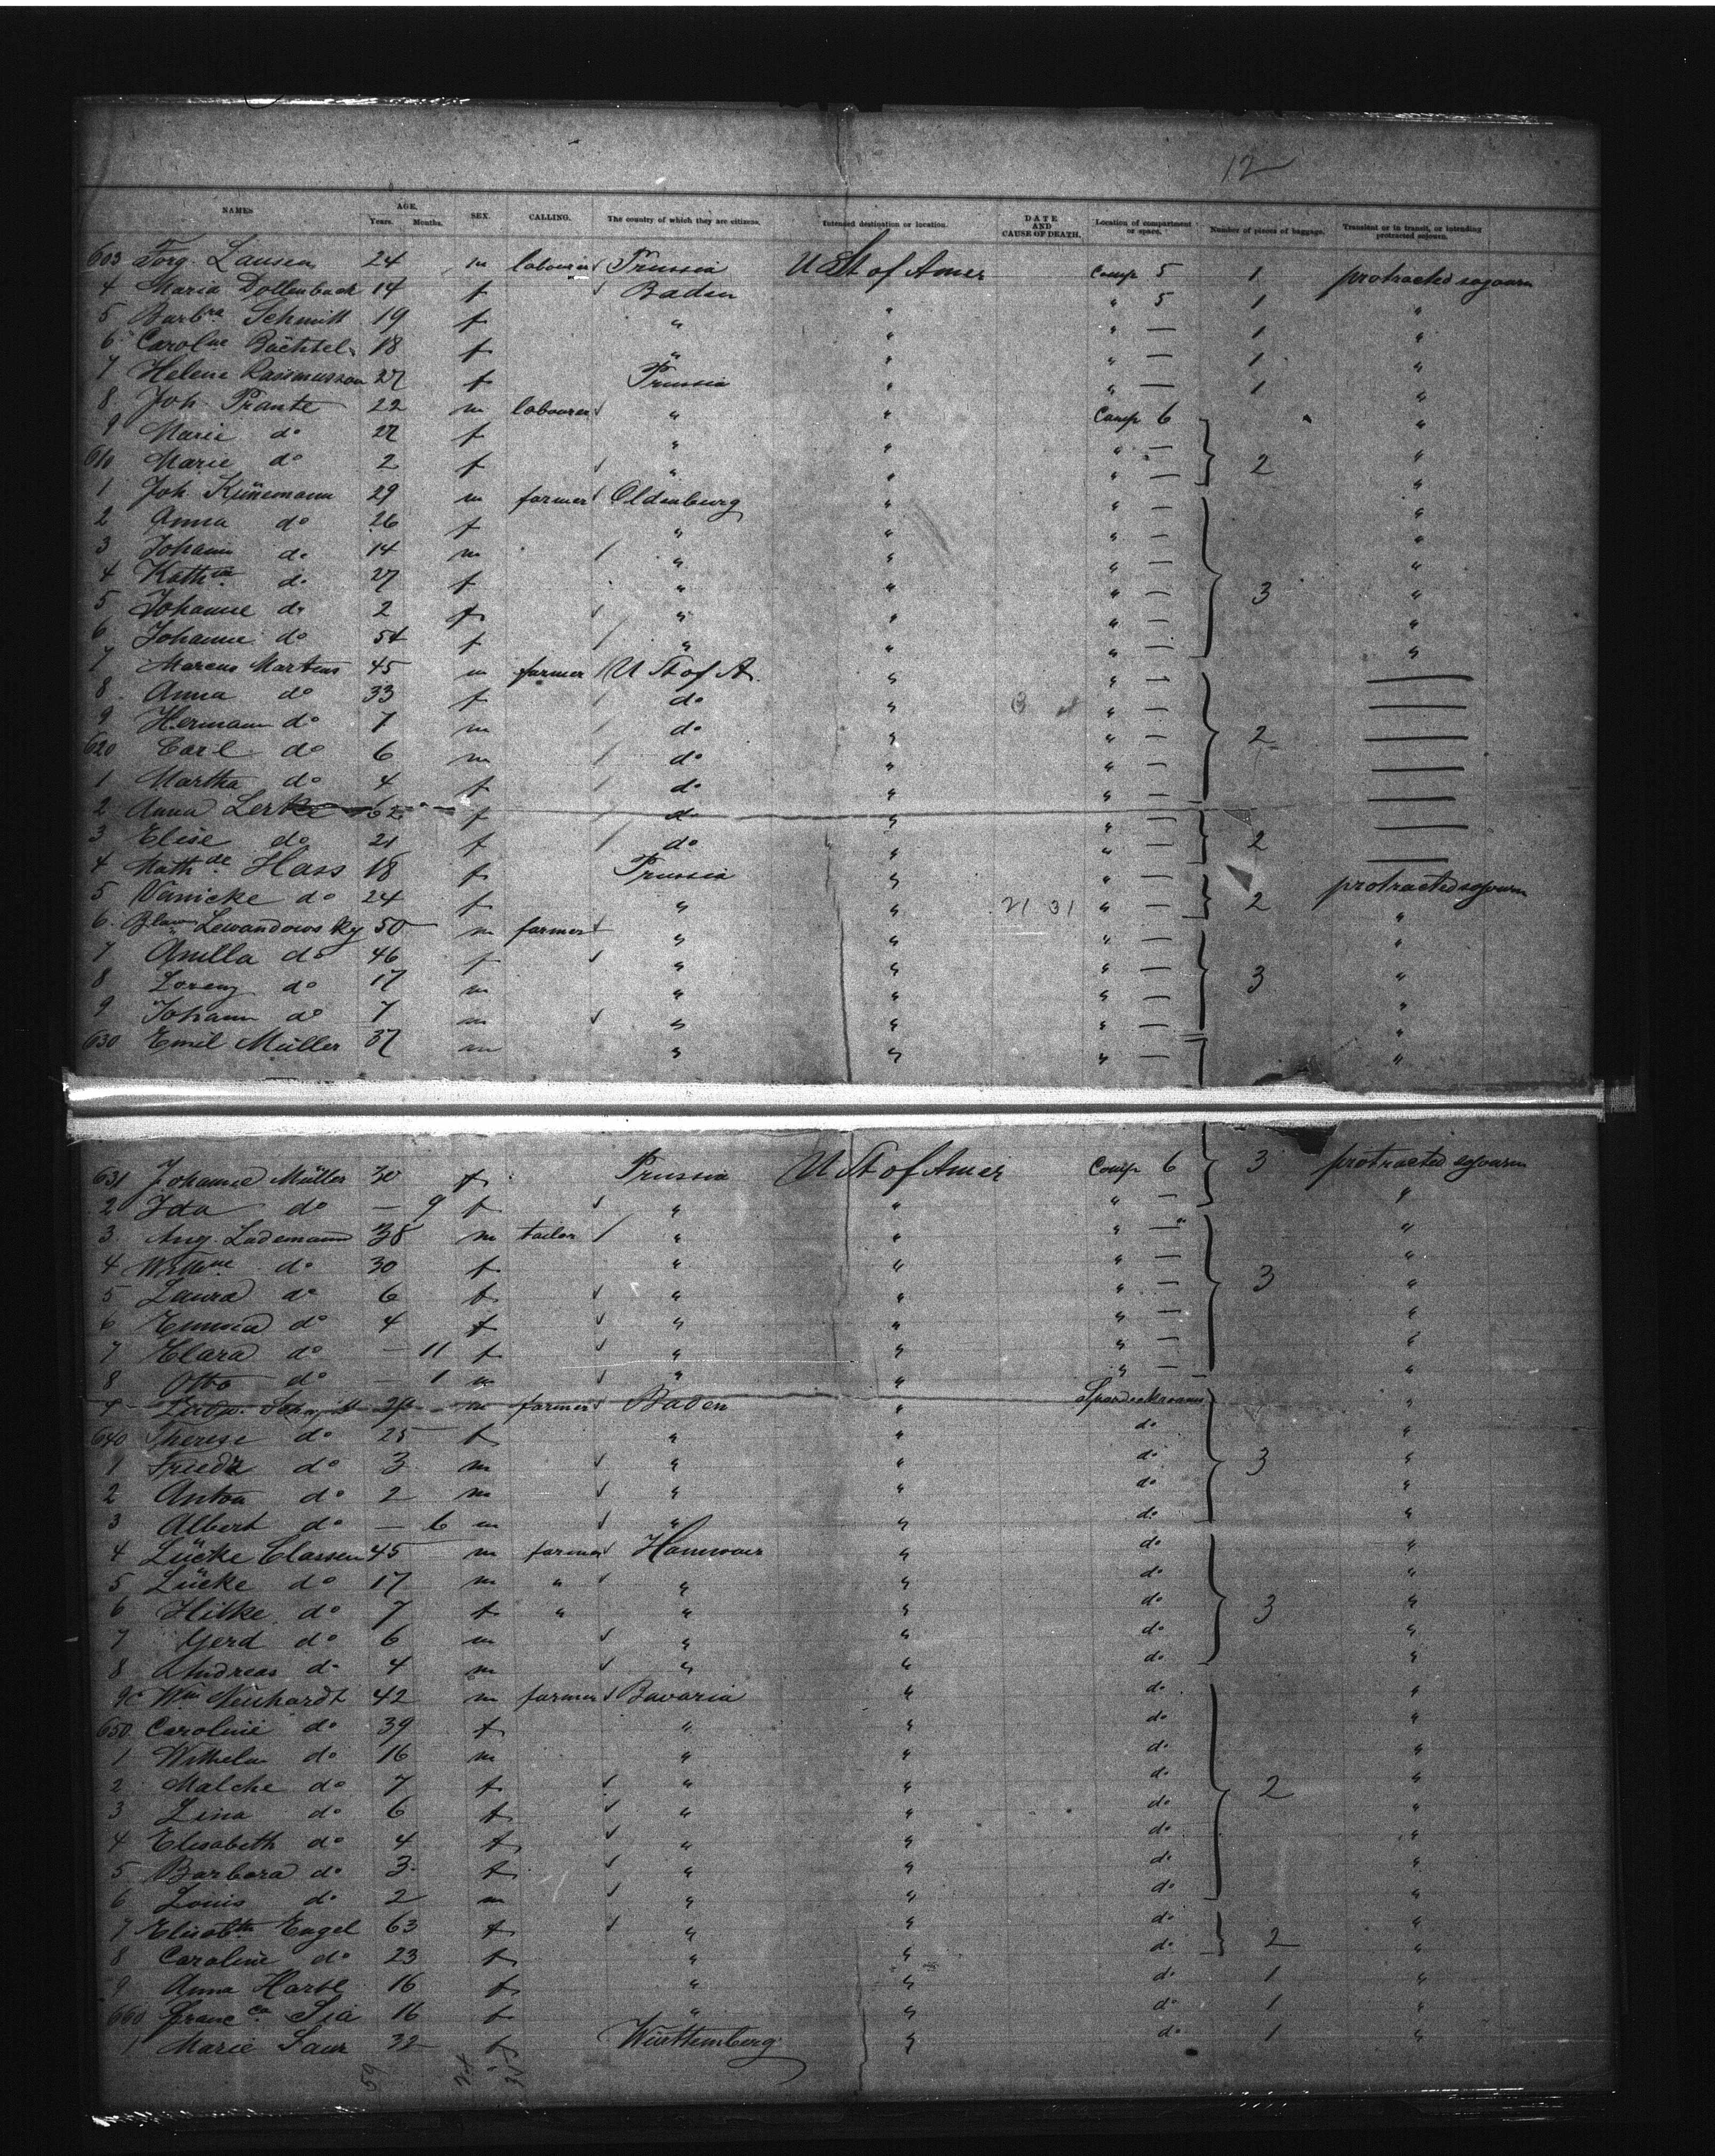 12
NAMES AGE. Years. Months. SEX. CALLING. The country of which they are citizens. Intended destination or location. DATE AND CAUSE OF DEATH. Location of compartment or space. Number of pieces of baggage. Transient or in transit, or intending protracted sojourn.
603 Jorg. Lausen 24 m labourer Prussia U St of Amer Comp 5 1 protracted sojourn
4 Maria Dollenback 14 f Baden " 5 1 "
5 Barbra Schmitt 19 f " " " — 1 "
6 Carolne 18 f " " " — 1 "
7 Helene Rassmusson 27 f Prussia " " — 1 "
8 Joh. Prante 22 m labourer " " Comp 6 "
9 Marie do 27 f " " " — "
610 Marie do 2 f " " " — 2 "
1 Joh Künemann 29 m farmer Oldenburg " " — "
2 Anna do 26 f " " " — "
3 Johann do 14 m " " " — "
4 Kath do 27 f " " " — "
5 Johanne do 2 f " " " — 3 "
6 Johanne do 54 f " " " — "
7 Marcus Martens 45 m farmer U St of A. " " — —
8 Anna do 33 f do " " — —
9 Hermann do 7 m do " " — 2 —
620 Carl do 6 m do " " — —
1 Martha do 4 f do " " — —
2 Anna Lerke 62 f do " " — —
3 Elise do 21 f do " " — 2 —
4 Mathde Hass 18 f Prussia " " — protracted sojourn
5 Wanicke do 24 f " " 21 31 " — 2 "
6 Lewandowsky 50 m farmer " " " — "
7 do 46 f " " " — "
8 Lorenz do 17 m " " " — 3 "
9 Johann do 7 m " " " — "
630 Emil Müller 37 m " " " — "
631 Johanne Müller 30 f Prussia U St of Amer Comp 6 3 protracted sojourn
2 Ida do — 9 f " " " — "
3 Aug. Lademann 38 m tailor " " " — "
4 do 30 f " " " — "
5 Laura do 6 f " " " — 3 "
6 Emma do 4 f " " " — "
7 Klara do — 11 f " " " — "
8 Otto do — 1 m " " " — "
9 Ludw. m farmer Baden " Spardeckroom "
640 Therese do 25 f " " do "
1 Friedr do 3 m " " do 3 "
2 Anton do 2 m " " do "
3 Albert do — 6 m " " do "
4 Lücke Classen 45 m farmer Hannover " do "
5 Lücke do 17 m " " " do "
6 Hilke do 7 f " " " do 3 "
7 Gerd do 6 m " " do "
8 Andreas do 4 m " " do "
9 Wm Neuhardt 42 m farmer Bavaria " do "
650 Caroline do 39 f " " do "
1 Wilhelm do 16 m " " do "
2 Malche do 7 f " " do 2 "
3 Lina do 6 f " " do "
4 Elisabeth do 4 f " " do "
5 Barbara do 3 f " " do "
6 Louis do 2 m " " do "
7 Elisabth Engel 63 f " " do "
8 Caroline do 23 f " " do 2 "
9 Anna 16 f " " do 1 "
660 Francca Sia 16 f " " do 1 "
1 Marie Saur 32 f Württemberg " do 1 "
59